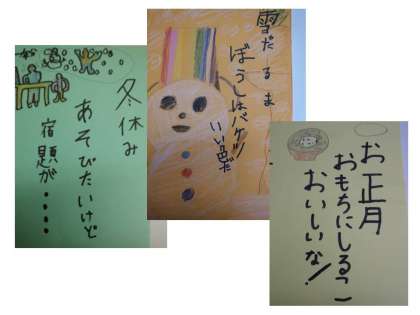 冬休み
あそびたいけど
宿題が・・・・
雪だるま
ぼうしはバケツ
いい色だ
お正月
おもちにしるこ
おいしいな！